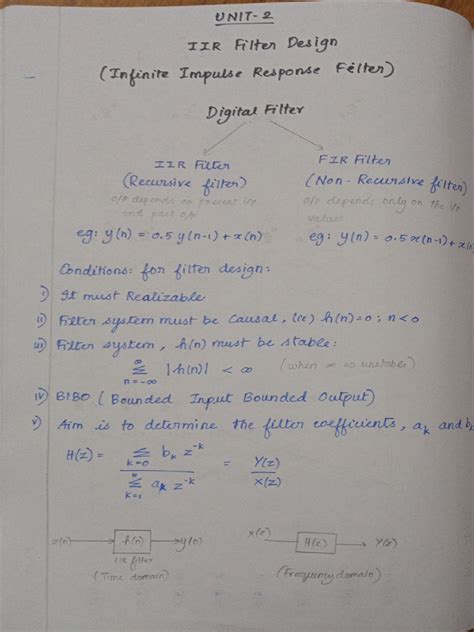 UNIT-2
IIR Filter Design
(Infinite Impulse Response Filter)
Digital Filter
IIR Filter
(Recursive filter)
o/p depends on present i/p
and past o/p
eg: y(n) = 0.5 y(n-1) + x(n)
FIR Filter
(Non-Recursive filter)
o/p depends only on the i/p
values
eg: y(n) = 0.5 x(n-1) + x(
Conditions: for filter design:
i) It must Realizable
ii) Filter system must be Causal, (ie) h(n) = 0 ; n < 0
iii) Filter system, h(n) must be stable:
∞
Σ |h(n)| < ∞ (when ∞ is unstable)
n=-∞
iv) BIBO (Bounded Input Bounded Output)
v) Aim is to determine the filter coefficients, ak and bk
H(z) = Σ bk z^-k = Y(z)
k=0
Σ ak z^-k X(z)
k=1
x(n) h(n) y(n)
IIR filter
(Time domain)
X(z) H(z) Y(z)
(Frequency domain)